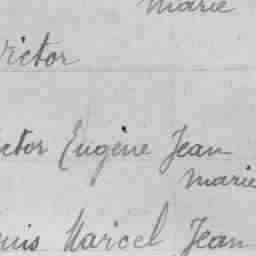 Marie
Victor
ctor Eugène Jean
Marie
ouis Marcel Jean